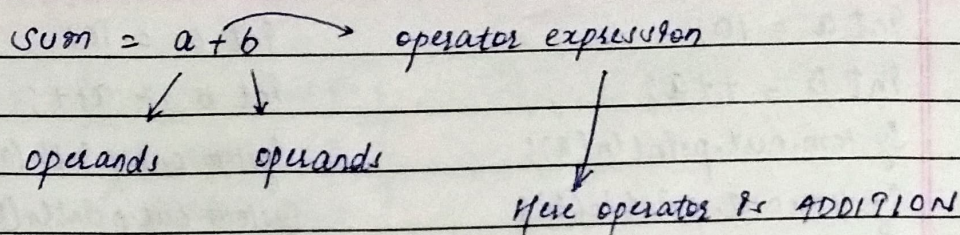 sum = a + b → operator expression
operands operands
Here operator is ADDITION